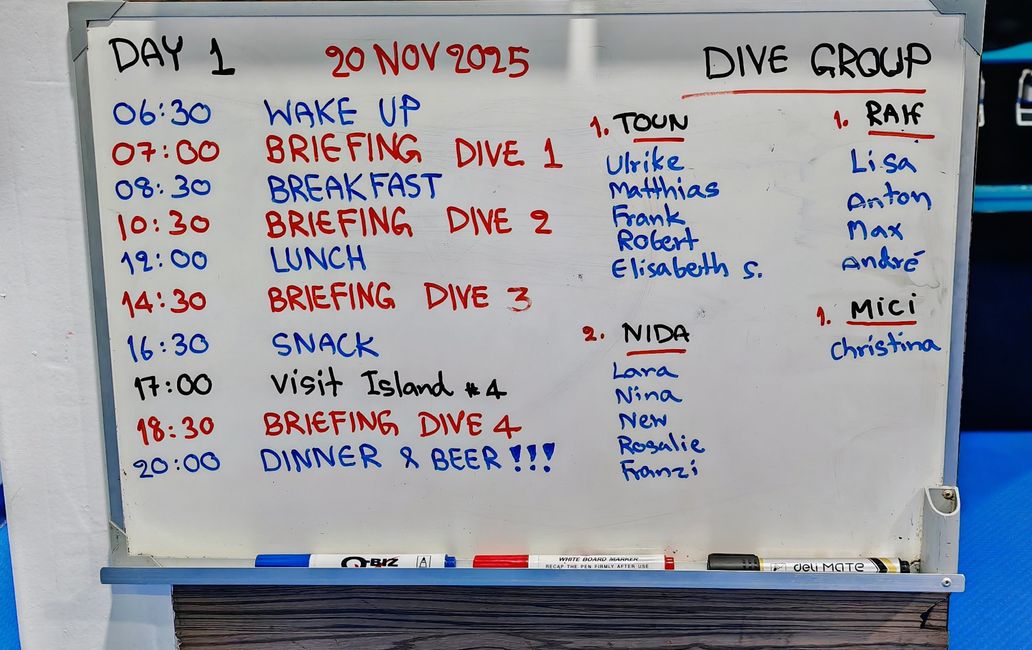 DAY 1 20 NOV 2025
06:30 WAKE UP
07:00 BRIEFING DIVE 1
08:30 BREAKFAST
10:30 BRIEFING DIVE 2
12:00 LUNCH
14:30 BRIEFING DIVE 3
16:30 SNACK
17:00 Visit Island #4
18:30 BRIEFING DIVE 4
20:00 DINNER & BEER!!!
DIVE GROUP
1. TOUN
Ulrike
Matthias
Frank
Robert
Elisabeth S.
2. NIDA
Lara
Nina
New
Rosalie
Franzi
1. RAIF
Lisa
Anton
Max
André
1. MiCi
Christina
Q-BIZ A
WHITE BOARD MARKER
RECAP THE PEN FIRMLY AFTER USE
deli MATE